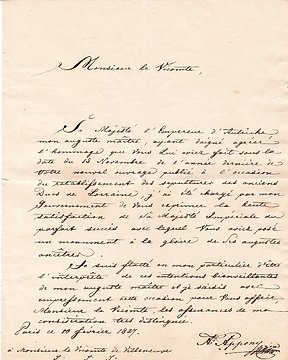 Monsieur le Vicomte,
Sa Majesté l'Empereur d'Autriche
mon auguste maître, ayant daigné agréer
l'hommage que Vous Lui aviez fait sous la
date du 13 Novembre de l'année dernière de
Votre nouvel ouvrage publié à l'occasion
du rétablissement des sépultures des anciens
Ducs de Lorraine, j'ai été chargé par mon
Gouvernement de Vous exprimer la haute
satisfaction de Sa Majesté Impériale du
parfait succès avec lequel Vous aviez posé
un monument à la gloire de Ses augustes
ancêtres.
Je suis flatté en mon particulier d'être
l'interprète de ces intentions bienveillantes
de mon auguste maître et je saisis avec
empressement cette occasion pour Vous offrir
Monsieur le Vicomte les assurances de ma
considération très distinguée.
Paris ce 10 février 1827.
A. Appony
à Monsieur le Vicomte de Villeneuve